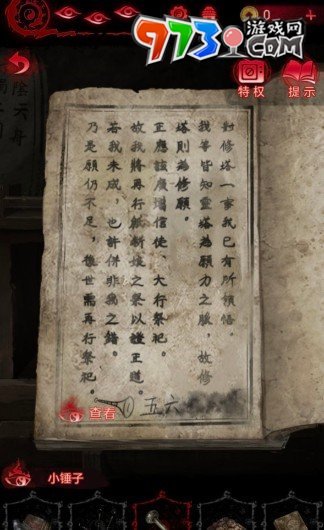 973游戏网
.COM
0
特权
提示
對修塔一事我已有所領悟。
我等皆知靈塔為願力之脈，故修
塔則為修願。
正應該廣增信徒、大行祭祀。
故我將再行紙新娘之祭以證正道。
若我未成，也許併非我之錯。
乃是願仍不足，後世需再行祭祀。
五六
查看
小锤子